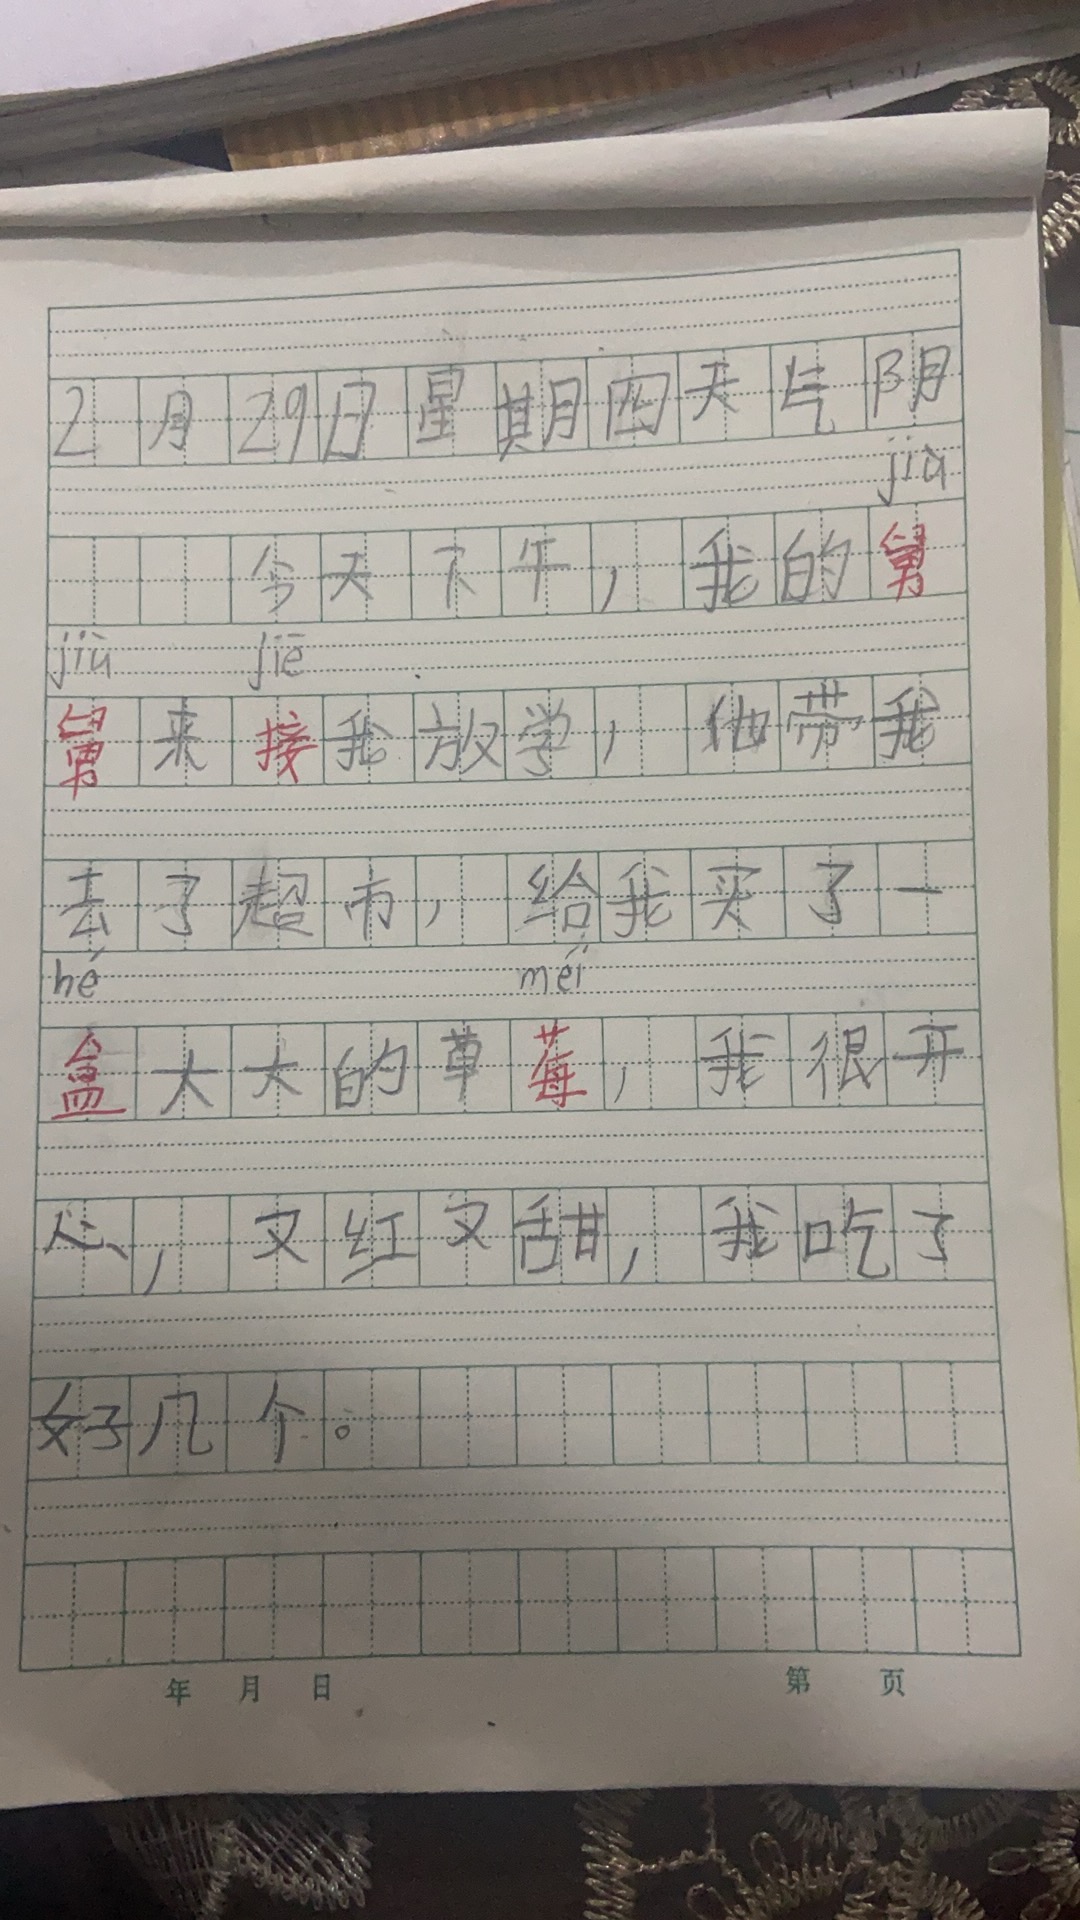 2月29日星期四天气阴
jiù
今天下午，我的舅
jiù jiē
舅来接我放学，他带我
去了超市，给我买了一
hé méi
盒大大的草莓，我很开
心，又红又甜，我吃了
好几个。
年 月 日 第 页